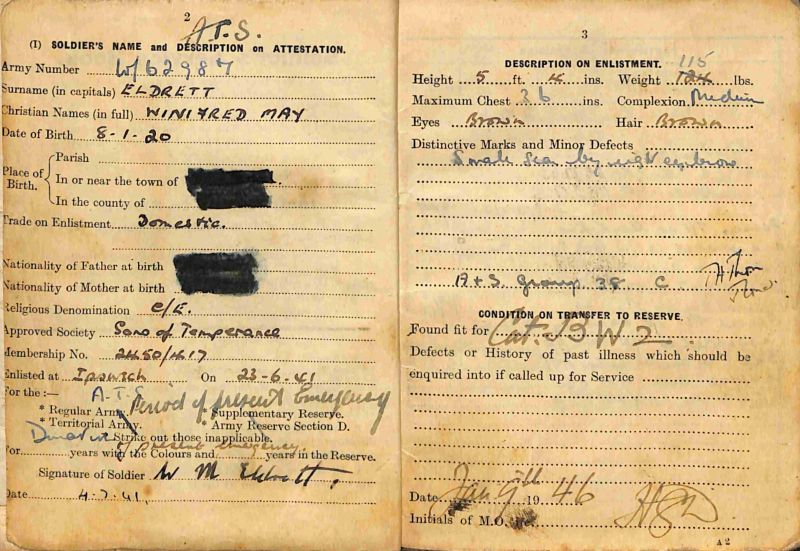 2
A.T.S.
(I) SOLDIER'S NAME and DESCRIPTION on ATTESTATION.
Army Number W/62987
Surname (in capitals) ELDRETT
Christian Names (in full) WINIFRED MAY
Date of Birth 8-1-20
Place of Birth.
Parish
In or near the town of
In the county of
Trade on Enlistment Domestic.
Nationality of Father at birth
Nationality of Mother at birth
Religious Denomination C/E.
Approved Society Sons of Temperance
Membership No. 2450/417
Enlisted at Ipswich On 23-6-41
For the :— A.T.S Period of present Emergency
* Regular Army. * Supplementary Reserve.
* Territorial Army. * Army Reserve Section D.
Duration * Strike out those inapplicable.
of present emergency
For years with the Colours and years in the Reserve.
Signature of Soldier W M Eldrett.
Date 4-7-41.
3
DESCRIPTION ON ENLISTMENT.
115
Height 5 ft. 4 ins. Weight 124 lbs.
Maximum Chest 36 ins. Complexion Medium
Eyes Brown Hair Brown
Distinctive Marks and Minor Defects
Small scar by right eyebrow
A+S Group 38 C
CONDITION ON TRANSFER TO RESERVE.
Found fit for Cat. B W 2
Defects or History of past illness which should be
enquired into if called up for Service
Date Jan 9th 1946
Initials of M.O.
A 2